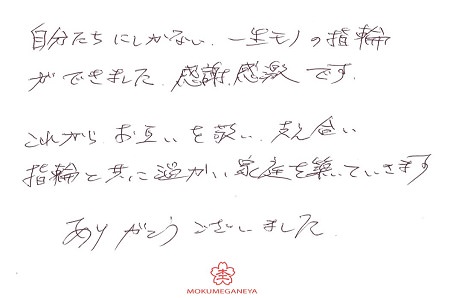 自分たちにしかない、一生モノの指輪
ができました。感謝、感激です。
これからお互いを敬い、支え合い
指輪と共に温かい家庭を築いていきます
ありがとうございました。
MOKUMEGANEYA